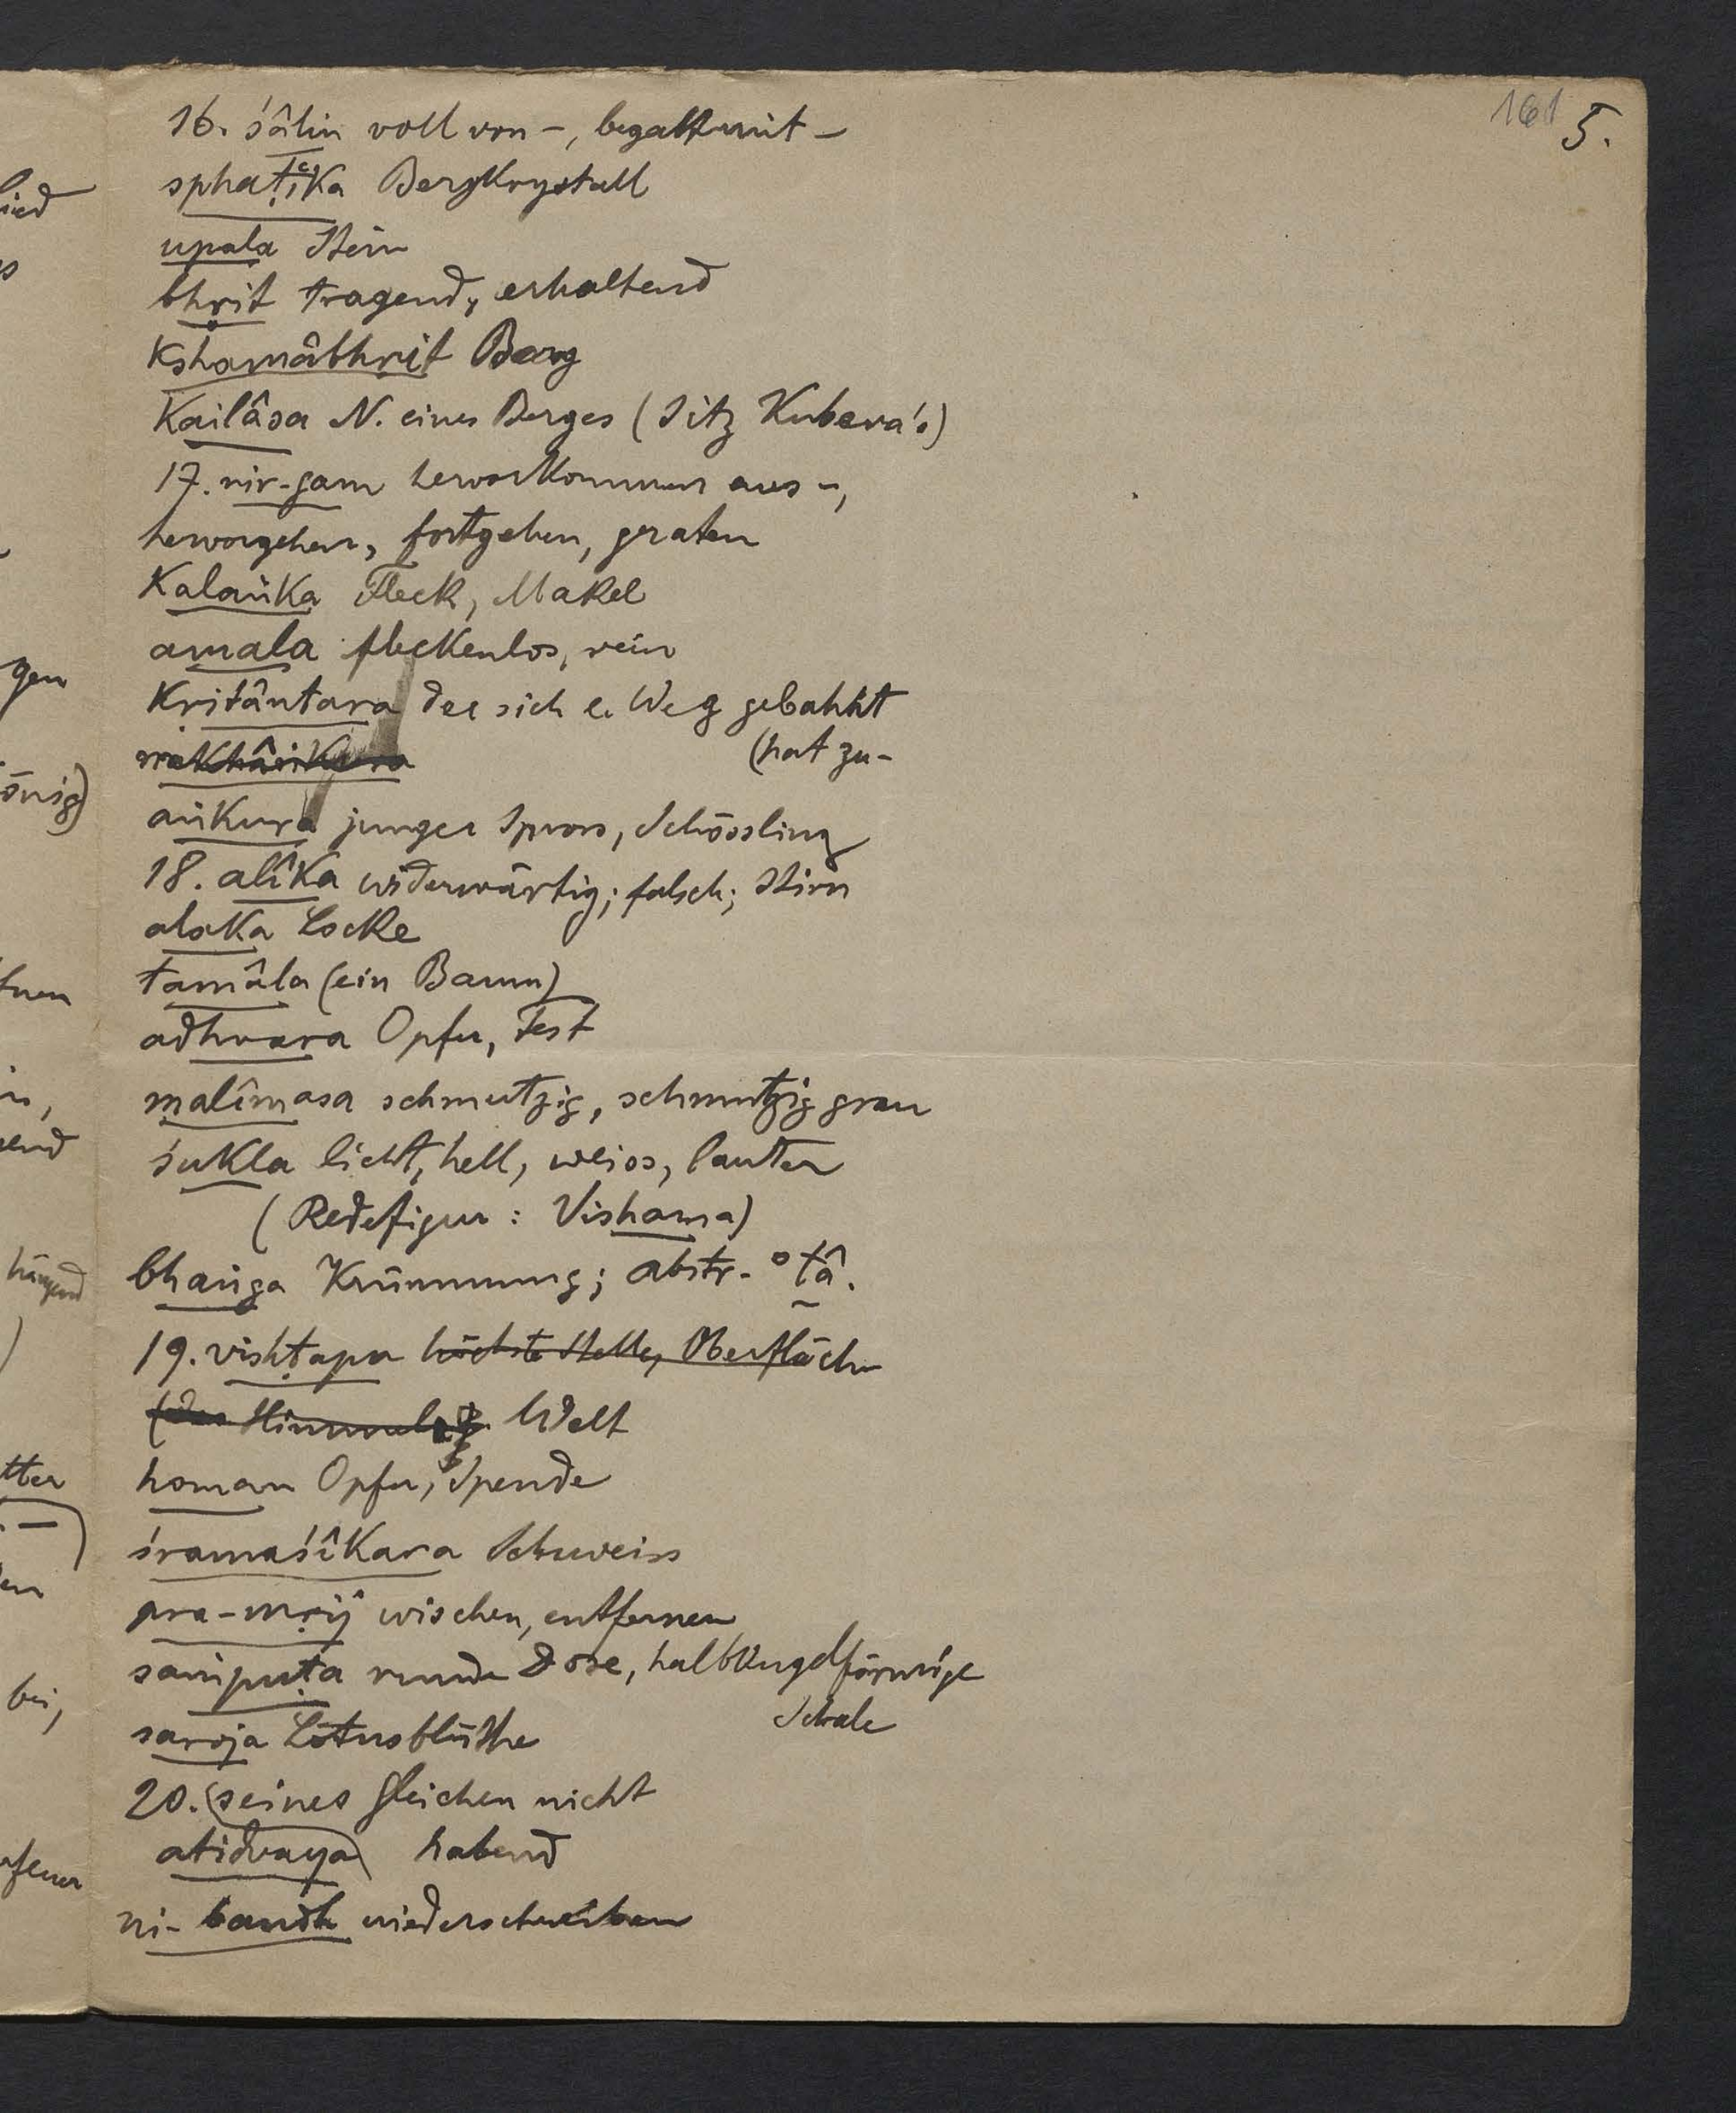 161 5.
16. śâlin voll von –, begabt mit –
sphaṭika Bergkrystall
upala Stein
bhṛit tragend, erhaltend
kshamâbhṛit Berg
Kailâsa N. eines Berges (Sitz Kubera's)
17. nir-gam hervorkommen aus –,
hervorgehen, fortgehen, geraten
Kalaṅka Fleck, Makel
amala fleckenlos, rein
kritântara der sich e. Weg gebahnt
(hat zu-
aṅkura junger Spross, Schössling
18. alîka widerwärtig; falsch; Stirn
alaka Locke
tamâla (ein Baum)
adhvara Opfer, Fest
malîmasa schmutzig, schmutzig grau
śukla licht, hell, weiss, lauter
(Redefigur: Vishama)
bhaṅga Krümmung; abstr. °tâ.
19. vishṭapa höchste Stelle, Oberfläche
(des Himmels) Welt
homan Opfer, Spende
śramaśîkara Schweiss
pra-mṛij wischen, entfernen
saṁpuṭa runde Dose, halbkugelförmige
Schale
saroja Lotusblüthe
20. (seines Gleichen nicht
atidvaya) habend
ni-bandh niederschreiben
lied
gen
hängend
bei,